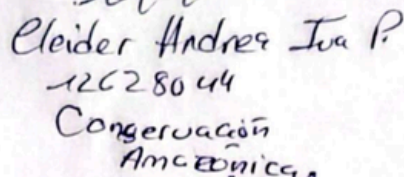 Cleider Andrea Iva P.
12628044
Congervación
Amazónica.